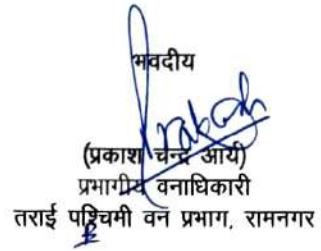 भवदीय
Prakash
(प्रकाश चन्द्र आर्या)
प्रभागीय वनाधिकारी
तराई पश्चिमी वन प्रभाग, रामनगर